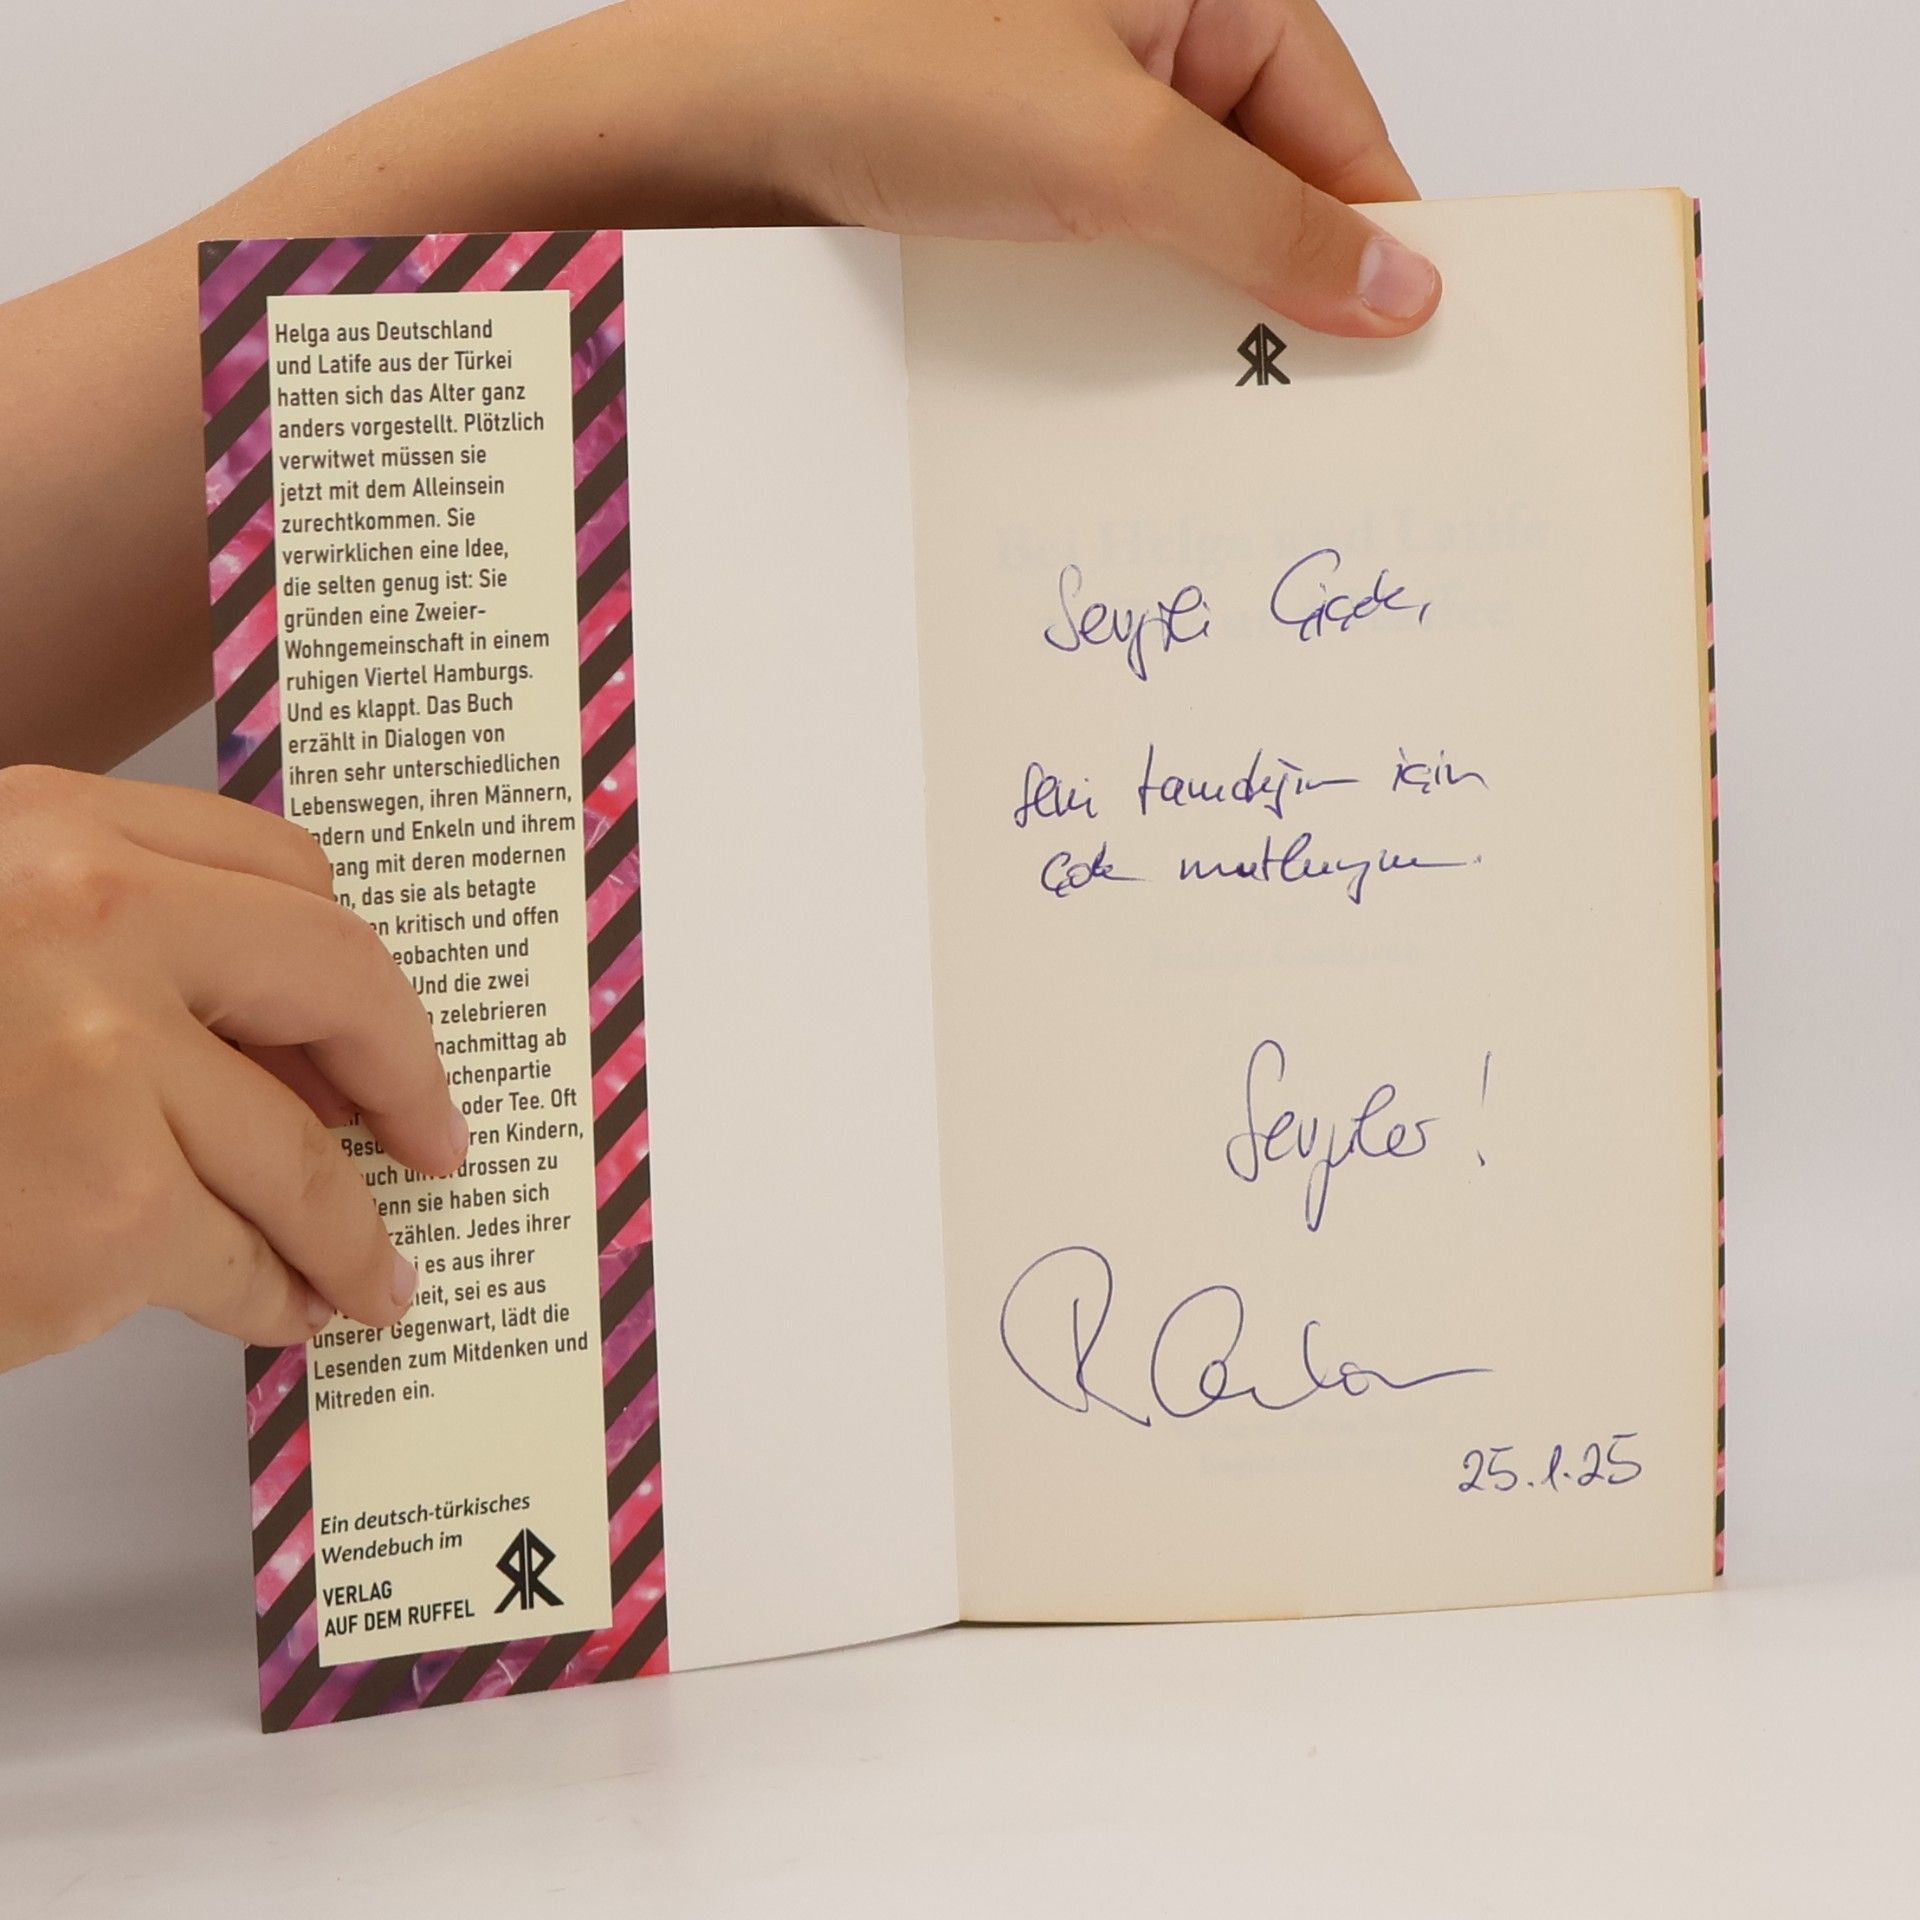 Helga aus Deutschland
und Latife aus der Türkei
hatten sich das Alter ganz
anders vorgestellt. Plötzlich
verwitwet müssen sie
jetzt mit dem Alleinsein
zurechtkommen. Sie
verwirklichen eine Idee,
die selten genug ist: Sie
gründen eine Zweier-
Wohngemeinschaft in einem
ruhigen Viertel Hamburgs.
Und es klappt. Das Buch
erzählt in Dialogen von
ihren sehr unterschiedlichen
Lebenswegen, ihren Männern,
ndern und Enkeln und ihrem
ang mit deren modernen
n, das sie als betagte
en kritisch und offen
eobachten und
Und die zwei
zelebrieren
nachmittag ab
uchenpartie
oder Tee. Oft
ren Kindern,
drossen zu
enn sie haben sich
rzählen. Jedes ihrer
i es aus ihrer
heit, sei es aus
unserer Gegenwart, lädt die
Lesenden zum Mitdenken und
Mitreden ein.
Ein deutsch-türkisches
Wendebuch im
VERLAG
AUF DEM RUFFEL
Sevgili Çiçek,
seni tanıdığım için
çok mutluyum.
Sevgiler!
25.1.25